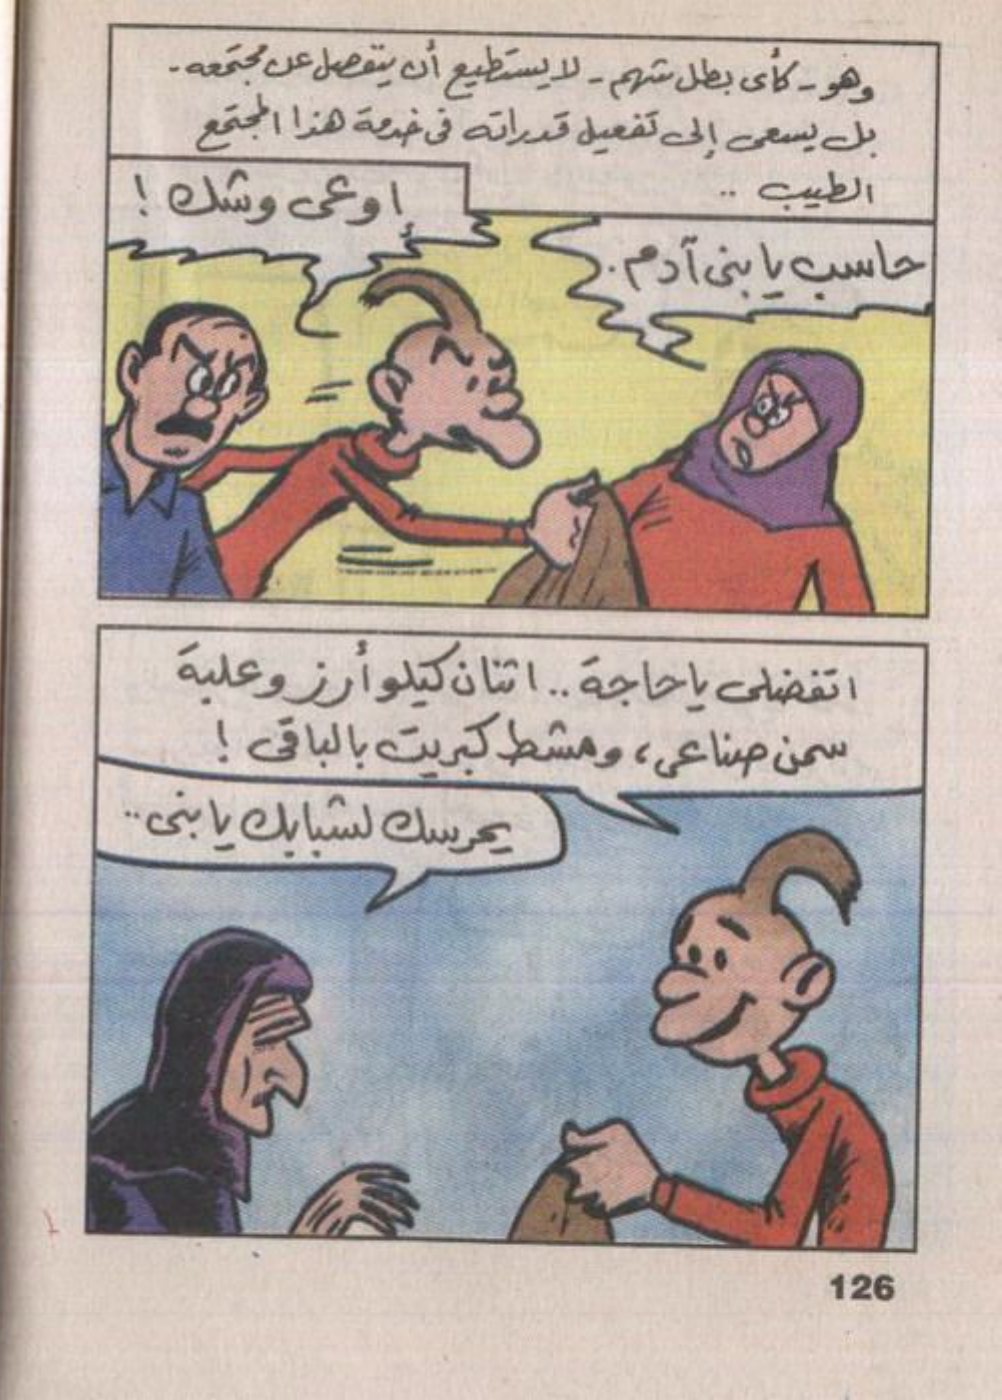 وهو - كأى بطل شهم - لا يستطيع أن ينفصل عن مجتمعه -
بل يسعى إلى تفعيل قدراته فى خدمة هذا المجتمع
الطيب ..
حاسب يا بنى آدم .
إوعى وشك !
اتفضلى يا حاجة .. اتنان كيلو أرز وعلبة
سمن صناعى ، ومشط كبريت بالباقى !
يحرسك لشبابك يا بنى ..
126